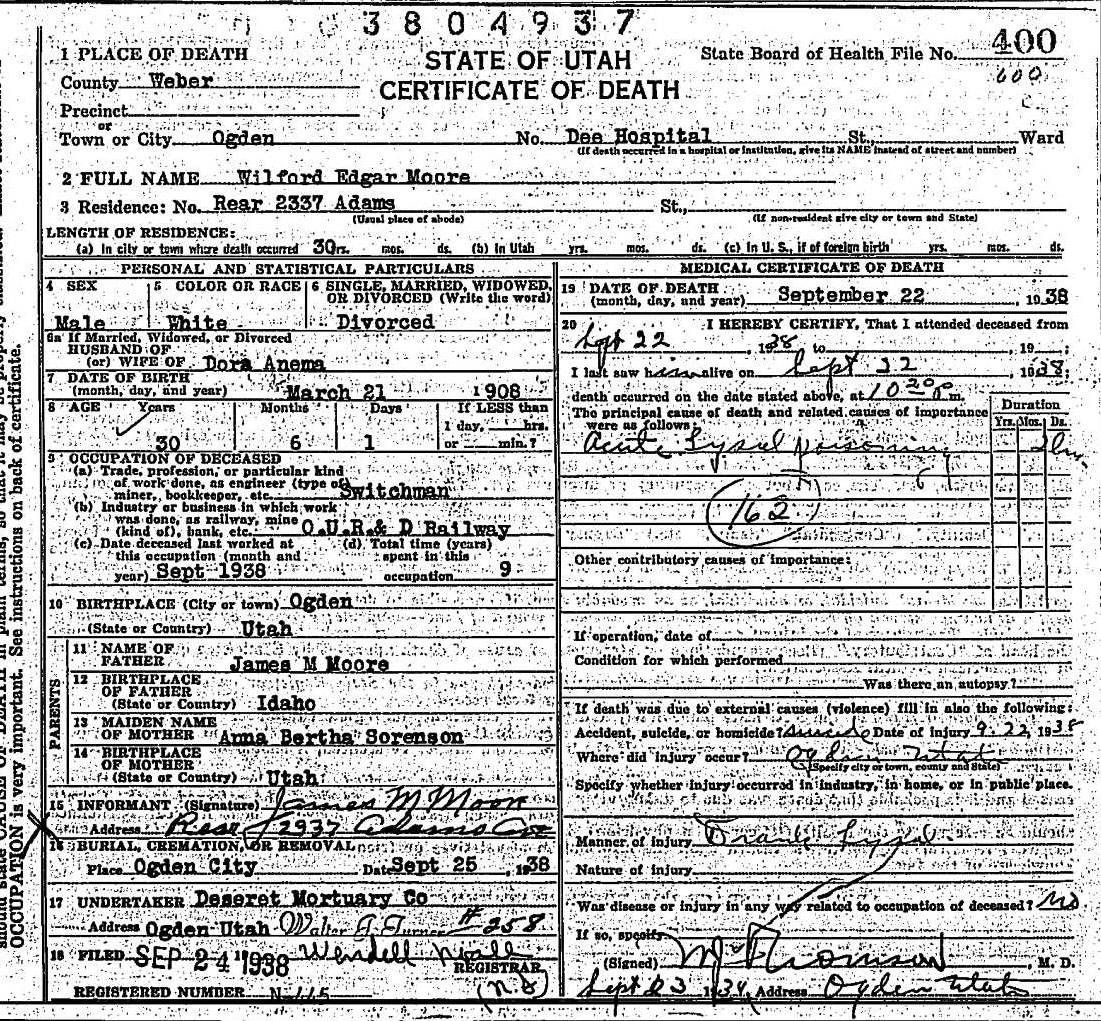 3804937
1 PLACE OF DEATH
STATE OF UTAH
State Board of Health File No. 400
County Weber
600
CERTIFICATE OF DEATH
Precinct
or
Town or City Ogden No. Dee Hospital St., Ward
(If death occurred in a hospital or institution, give its NAME instead of street and number)
2 FULL NAME Wilford Edgar Moore
3 Residence: No. Rear 2337 Adams St.,
(Usual place of abode) (If non-resident give city or town and State)
LENGTH OF RESIDENCE:
(a) In city or town where death occurred 30 rs. mos. ds. (b) In Utah yrs. mos. ds. (c) In U. S., if of foreign birth yrs. mos. ds.
PERSONAL AND STATISTICAL PARTICULARS
4 SEX 5 COLOR OR RACE 6 SINGLE, MARRIED, WIDOWED, OR DIVORCED (Write the word)
Male White Divorced
6a If Married, Widowed, or Divorced
HUSBAND OF
(or) WIFE OF Dora Anema
7 DATE OF BIRTH
(month, day, and year) March 21 1908
8 AGE Years Months Days If LESS than
1 day, hrs.
30 6 1 or min.?
9 OCCUPATION OF DECEASED
(a) Trade, profession, or particular kind
of work done, as engineer (type of
miner, bookkeeper, etc. Switchman
(b) Industry or business in which work
was done, as railway, mine
(kind of), bank, etc. O.U.R.& D Railway
(c) Date deceased last worked at (d) Total time (years)
this occupation (month and spent in this
year) Sept 1938 occupation 9
10 BIRTHPLACE (City or town) Ogden
(State or Country) Utah
PARENTS
11 NAME OF
FATHER James M Moore
12 BIRTHPLACE
OF FATHER
(State or Country) Idaho
13 MAIDEN NAME
OF MOTHER Anna Bertha Sorenson
14 BIRTHPLACE
OF MOTHER
(State or Country) Utah
15 INFORMANT (Signature) James M Moore
Address Rear 2937 Adams Ave
16 BURIAL, CREMATION, OR REMOVAL
Place Ogden City Date Sept 25, 1938
17 UNDERTAKER Deseret Mortuary Co
Address Ogden Utah Walter J. Turner #258
18 FILED SEP 24 1938 Wendell
REGISTRAR
REGISTERED NUMBER N-445
MEDICAL CERTIFICATE OF DEATH
19 DATE OF DEATH
(month, day, and year) September 22, 1938
20 I HEREBY CERTIFY, That I attended deceased from
Sept 22, 1938 to , 19 ;
I last saw him alive on Sept 22, 1938;
death occurred on the date stated above, at 10 20 P m.
The principal cause of death and related causes of importance
were as follows
Duration
Yrs. Mos. Ds.
Acute Lysol poisoning
162
Other contributory causes of importance:
If operation, date of
Condition for which performed
Was there an autopsy?
If death was due to external causes (violence) fill in also the following:
Accident, suicide, or homicide? Suicide Date of injury 9. 22, 1938
Where did injury occur? Ogden Utah
(Specify city or town, county and State)
Specify whether injury occurred in industry, in home, or in public place.
Manner of injury Drank Lysol
Nature of injury
Was disease or injury in any way related to occupation of deceased? No
If so, specify
(Signed) Thomson, M. D.
Sept 23 193 , Address Ogden Utah
OCCUPATION is very important. See instructions on back of certificate.